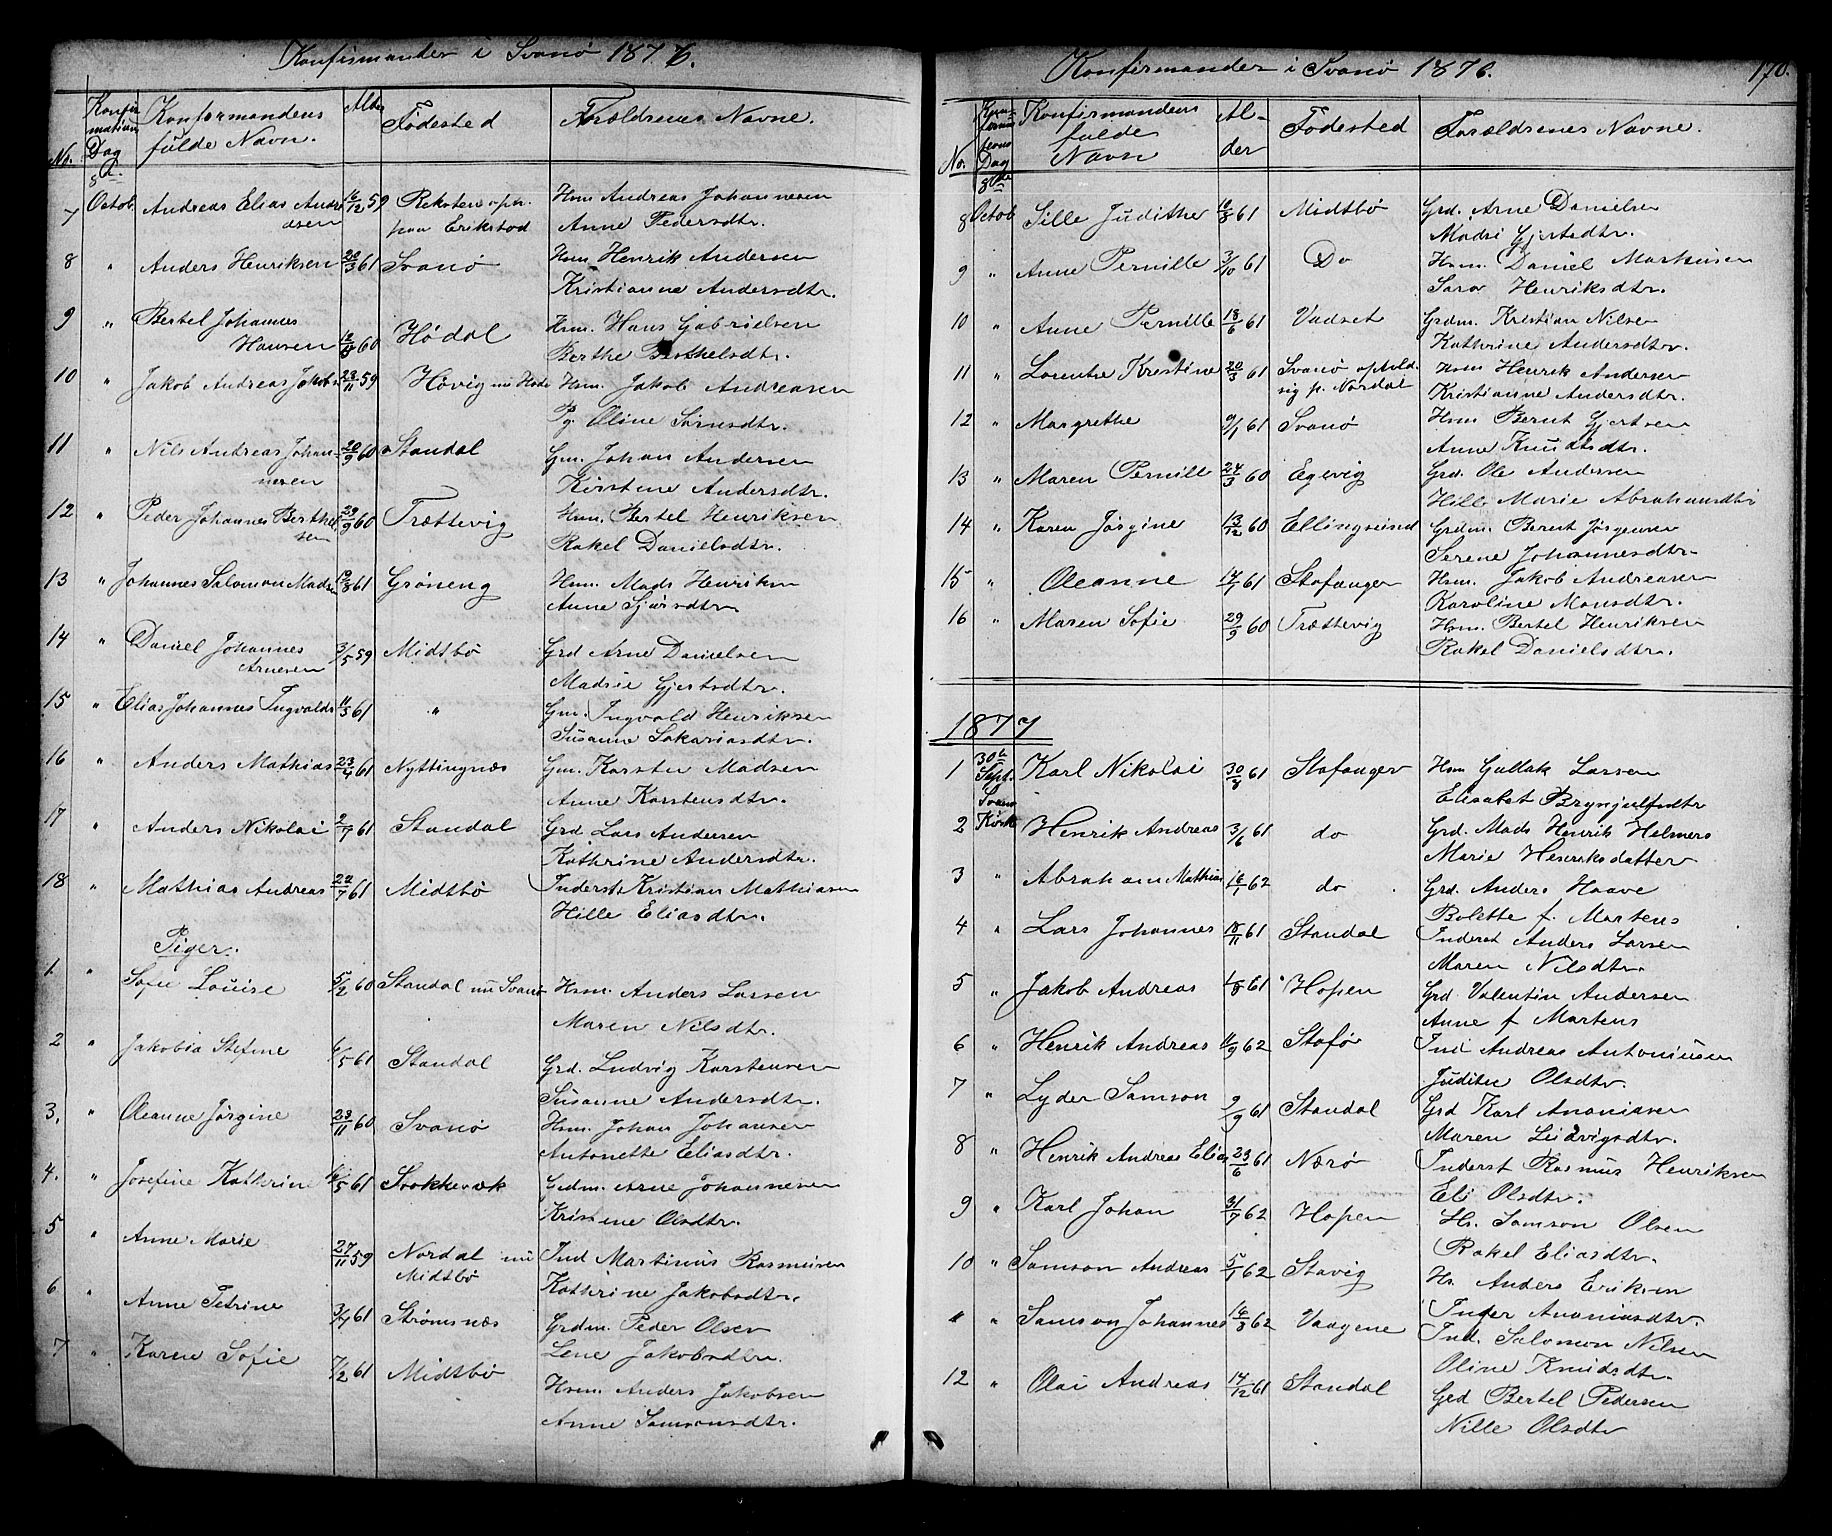 Konfirmander i Svanø 1876.
No.
Konfirmations Dag
Konformandens fulde Navn.
Alder
Fødested
Forældrenes Navne.
7 8de Octob. Andreas Elias Andreasen 6/12 59 Reksten oph. paa Erikstad Hsm Andreas Johannesen
Anne Pedersdtr.
8 " Anders Henriksen 20/3 61 Svanø Hsm. Henrik Andersen
Kristianne Andersdtr.
9 " Bertel Johannes Hansen 60 Hødal Hsm. Hans Gabrielsen
Berthe Berthelsdtr.
10 " Jakob Andreas Jakobs 23/11 59 Høvig nu Hsm. Jakob Andreasen
Pg. Oline
11 " Nils Andreas Johannesen 20/9 60 Standal Gm. Johan Andersen
Kirstine Andersdtr.
12 " Peder Johannes Berthelsen 29/9 60 Trættevig Hsm. Bertel Henriksen
Rakel Danielsdtr.
13 " Johannes Salomon Madsen 61 Grøneng Hsm. Mads Henriksen
Anne
14 " Daniel Johannes Arnesen 3/5 59 Midtbø Grd Arne Danielsen
Madsie Gjertsdtr.
15 " Elias Johannes Ingvalds 11/3 61 " Gm. Ingvald Henriksen
Susanne Sakariasdtr.
16 " Anders Mathias 23/4 61 Nyttingnæs Gm. Karsten Madsen
Anne Karstensdtr.
17 " Anders Nikolai 2/7 61 Standal Grd. Lars Andersen
Kathrine Andersdtr.
18 " Mathias Andreas 22/7 61 Midtbø Inderst Kristian Mathiasen
Hille Eliasdtr.
Piger.
1. " Sofie Louise 5/2 60 Standal nu Svanø Hsm. Anders Larsen
Maren Nilsdtr.
2 " Jakobia Stefine 6/5 61 Standal Grd. Ludvig Karstensen
Susanne Andersdtr.
3. " Oleanne Jørgine 23/11 60 Svanø Hsm. Johan Johansen
Antonette Eliasdtr.
4. " Josefine Kathrine 61 Grdm. Arne Johannesen
Kristene Olsdtr.
5 " Anne Marie 27/11 59 Nordal nu Midtbø Ind Martinus Rasmusen
Kathrine Jakobsdtr.
6 " Anne Petrine 3/4 61 Strømsnæs Grdm. Peder Olsen
Lene Jakobsdtr.
7 " Karen Sofie 7/2 61 Midtbø Hsm. Anders Jakobsen
Anne Samsonsdtr.
Konfirmander i Svanø 1876.
170.
No.
Konfirmations Dag
Konfirmandens fulde Navn
Alder
Fødested
Forældrenes Navne.
8 8de Octob Sille Judithe 6/8 61 Midtbø Grd. Arne Danielsen
Madsi Gjertsdtr.
9 " Anne Pernille 3/10 61 Do Hsm. Daniel Markusen
Sara Henriksdtr.
10 " Anne Pernille 18/6 61 Vadset Grdm. Kristian Nilsen
Kathrine Andersdtr.
11 " Lorentse Kristine 20/3 61 Svanø ophold sig p. Nordal Hsm Henrik Andersen
Kristianne Andersdtr.
12 " Margrethe 9/1 61 Svanø Hsm Bernt Gjertsen
Anne Knudsdtr.
13 " Maren Pernille 24/3 60 Egevig Grd. Ole Andersen
Hille Marie Abrahamsdtr
14 " Karen Jørgine 13/12 60 Ellingsund Grdm. Bernt Jørgensen
Serene Johannesdtr
15 " Oleanne 14/1 61 Stafanger Hsm. Jakob Andreasen
Karoline Monsdtr.
16 " Maren Sofie 29/9 60 Trættevig Hsm. Bertel Henriksen
Rakel Danielsdtr.
1877
1 30te Sept. Svanø Kirke Karl Nikolai 30/8 61 Stafanger Hsm Gullak Larsen
Elisabet Brynjulfsdtr
2 Henrik Andreas 3/6 61 do Grd. Mads Henrik Helmers
Marie Henriksdatter
3 " Abraham Mathias 18/1 62 do Grd. Anders Haave
Bolette f. Martens
4 " Lars Johannes 18/11 61 Standal Inderst Anders Larsen
Maren Nilsdtr.
5 " Jakob Andreas 1/8 61 Hopen Grd. Valentin Andersen
Anne f Martens
6 " Henrik Andreas 11/9 62 Stafø Ind Andreas Antoniusen
Judithe Olsdtr.
7 " Lyder Samson 9/9 61 Standal Grd Karl Ananiasen
Maren Ludvigsdtr.
8 " Henrik Andreas Elias 23/6 61 Nærø Inderst Rasmus Henriksen
Eli Olsdtr.
9 " Karl Johan 31/7 62 Hopen Hs. Samson Olsen
Rakel Eliasdtr.
10 " Samson Andreas 5/1 62 Stavig Hs. Anders Eriksen
Inger Ananiasdtr.
" " Samson Johannes 16/3 62 Vaagene Ind. Salomon Nilsen
Oline Knudsdtr.
12 " Olai Andreas 14/12 61 Standal Grd Bertel Pedersen
Nille Olsdtr